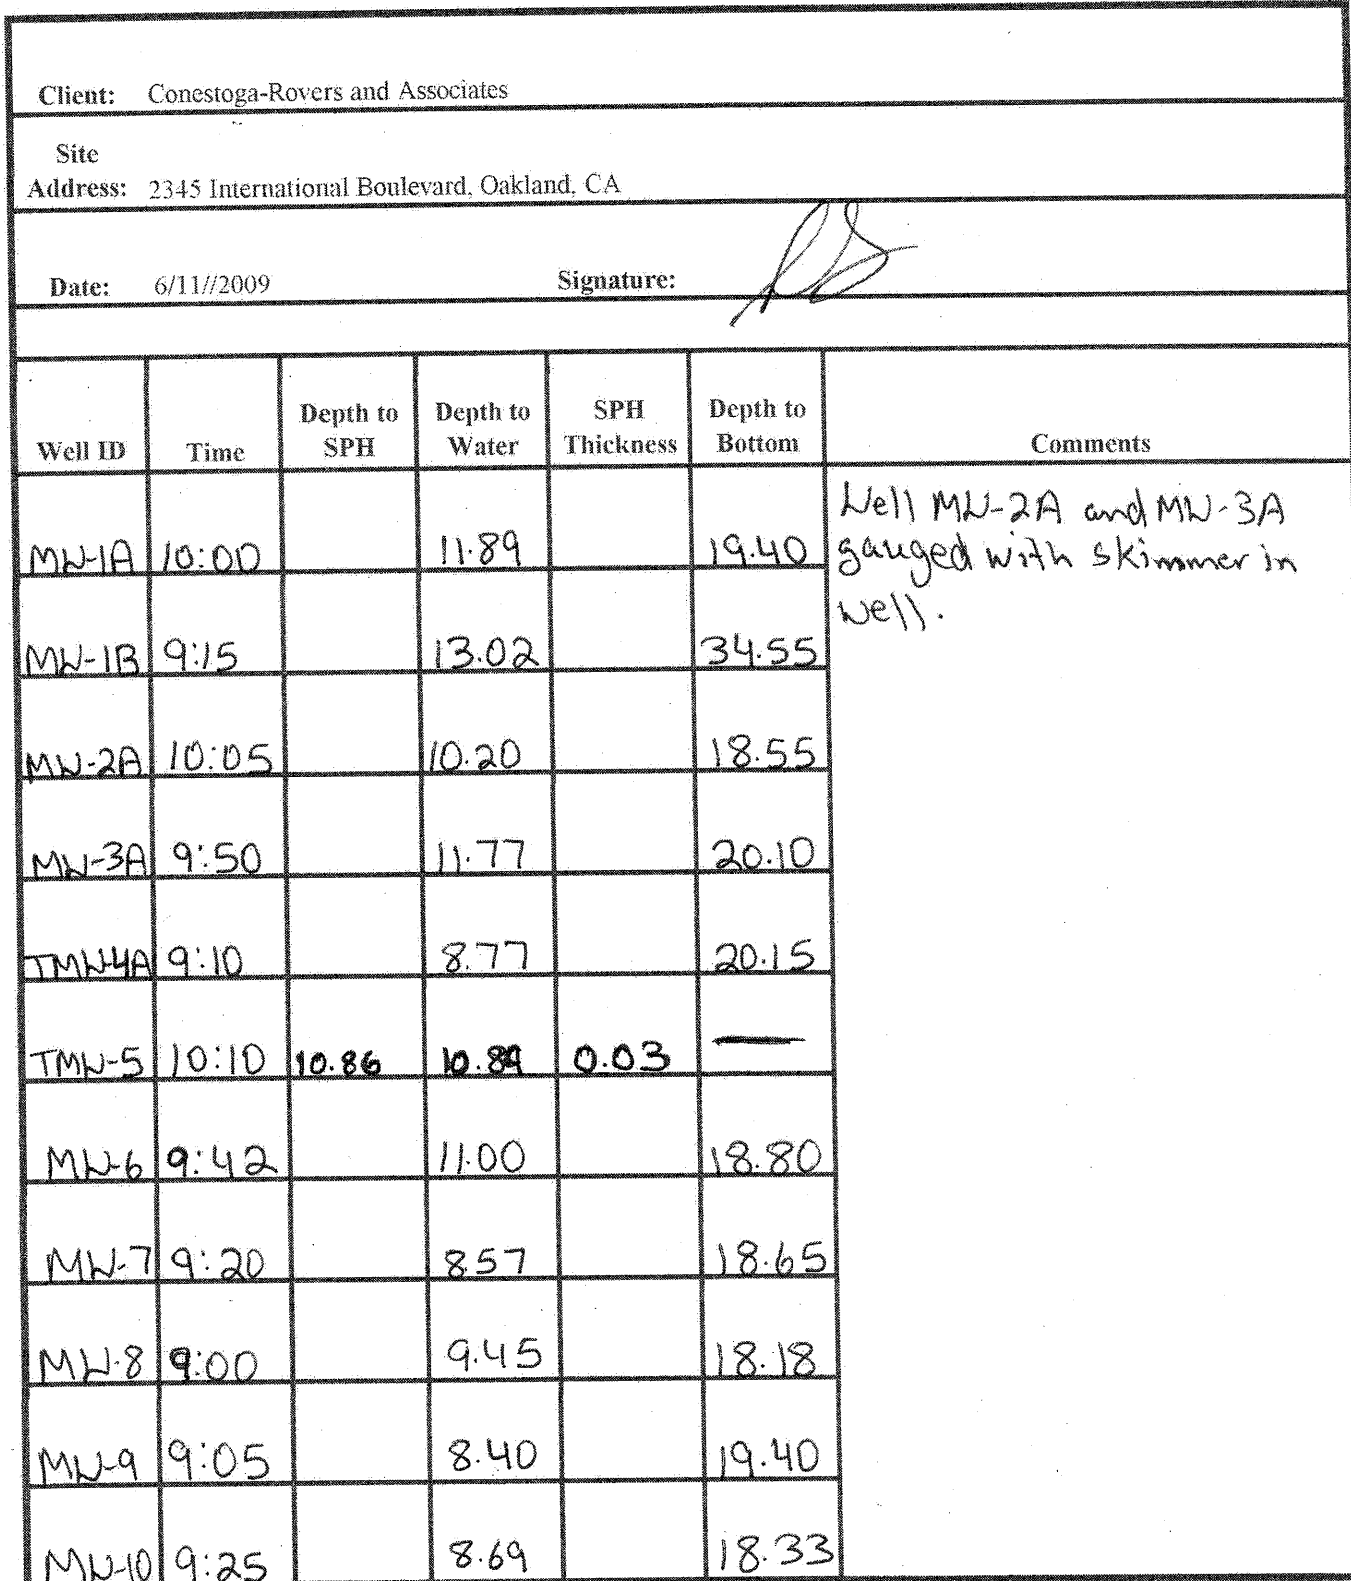 Client: Conestoga-Rovers and Associates
Site
Address: 2345 International Boulevard, Oakland, CA
Date: 6/11//2009 Signature:
Well ID Time Depth to SPH Depth to Water SPH Thickness Depth to Bottom Comments
MW-1A 10:00 11.89 19.40
Well MW-2A and MW-3A
gauged with skimmer in
well.
MW-1B 9:15 13.02 34.55
MW-2A 10:05 10.20 18.55
MW-3A 9:50 11.77 20.10
TMW-4A 9:10 8.77 20.15
TMW-5 10:10 10.86 10.89 0.03 —
MW-6 9:42 11.00 18.80
MW-7 9:20 8.57 18.65
MW-8 9:00 9.45 18.18
MW-9 9:05 8.40 19.40
MW-10 9:25 8.69 18.33